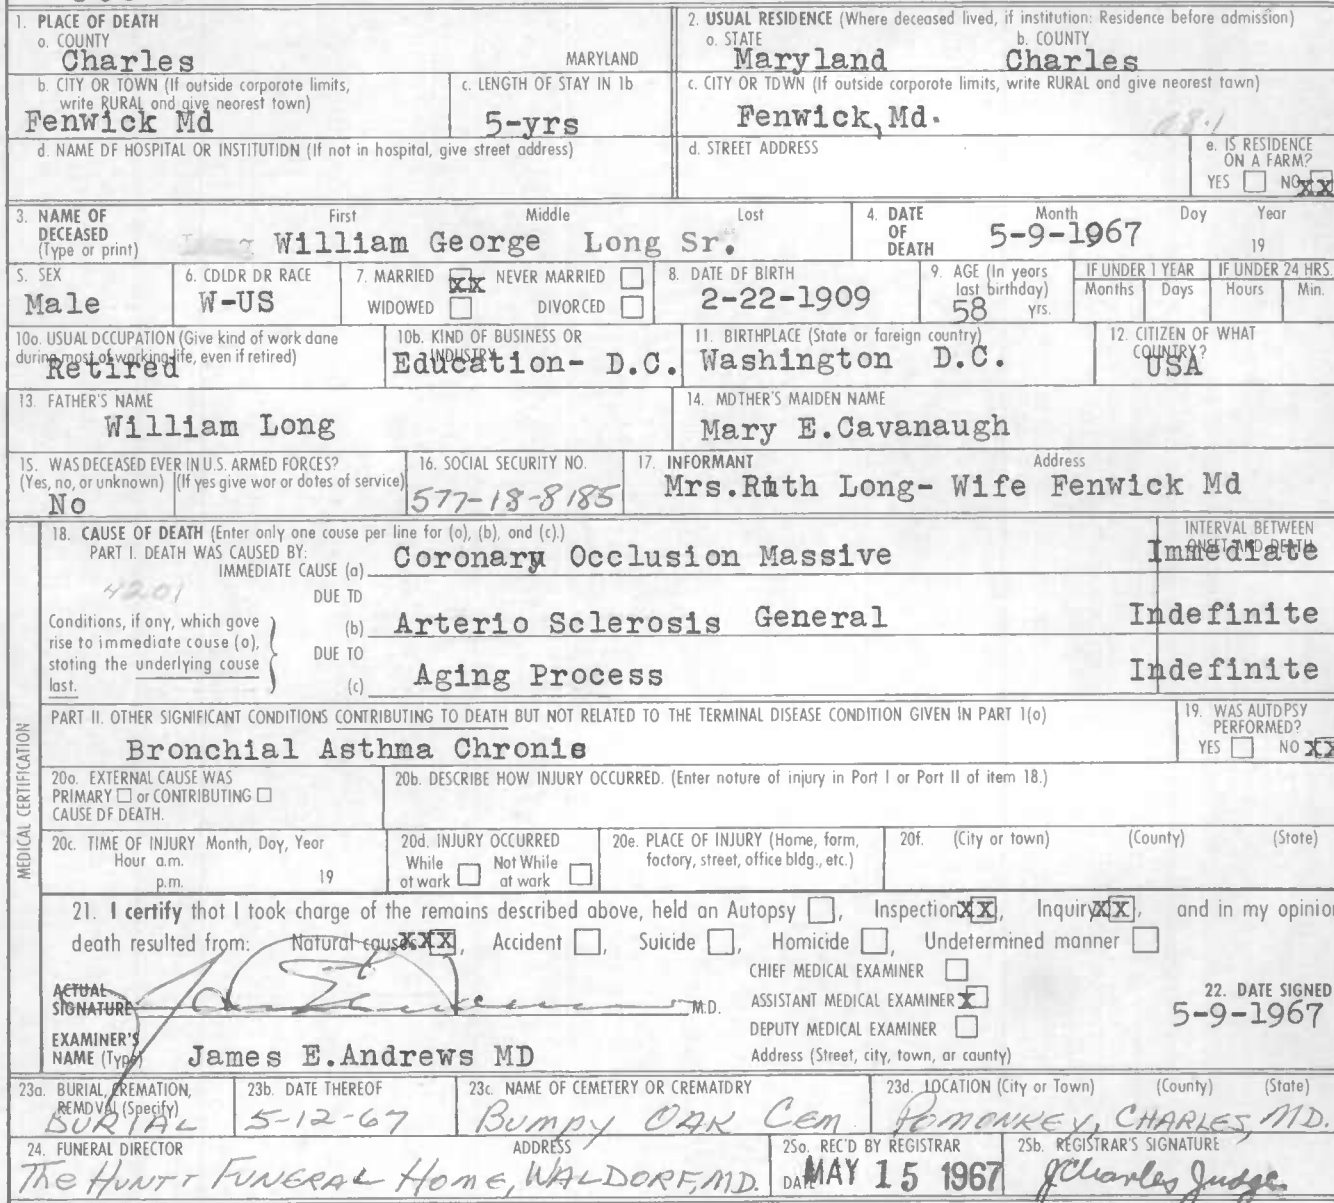 1. PLACE OF DEATH
a. COUNTY
Charles MARYLAND
2. USUAL RESIDENCE (Where deceased lived, if institution: Residence before admission)
a. STATE b. COUNTY
Maryland Charles
b. CITY OR TOWN (If outside corporate limits, write RURAL and give nearest town)
Fenwick Md
c. LENGTH OF STAY IN 1b
5-yrs
c. CITY OR TOWN (If outside corporate limits, write RURAL and give nearest town)
Fenwick, Md.
d. NAME OF HOSPITAL OR INSTITUTION (If not in hospital, give street address)
d. STREET ADDRESS
e. IS RESIDENCE
ON A FARM?
YES NO XX
3. NAME OF
DECEASED
(Type or print)
First Middle Last
William George Long Sr.
4. DATE
OF
DEATH
Month Day Year
5-9-1967 19
5. SEX
Male
6. COLOR OR RACE
W-US
7. MARRIED XX NEVER MARRIED
WIDOWED DIVORCED
8. DATE OF BIRTH
2-22-1909
9. AGE (In years
last birthday)
58 yrs.
IF UNDER 1 YEAR
Months Days
IF UNDER 24 HRS.
Hours Min.
10a. USUAL OCCUPATION (Give kind of work done
during most of working life, even if retired)
Retired
10b. KIND OF BUSINESS OR
INDUSTRY
Education- D.C.
11. BIRTHPLACE (State or foreign country)
Washington D.C.
12. CITIZEN OF WHAT
COUNTRY?
USA
13. FATHER'S NAME
William Long
14. MOTHER'S MAIDEN NAME
Mary E.Cavanaugh
15. WAS DECEASED EVER IN U.S. ARMED FORCES?
(Yes, no, or unknown) (If yes give war or dates of service)
No
16. SOCIAL SECURITY NO.
577-18-8185
17. INFORMANT Address
Mrs.Ruth Long- Wife Fenwick Md
18. CAUSE OF DEATH (Enter only one cause per line for (a), (b), and (c).)
PART I. DEATH WAS CAUSED BY:
IMMEDIATE CAUSE (a) Coronary Occlusion Massive
INTERVAL BETWEEN
ONSET AND DEATH
Immediate
4201
DUE TO
Conditions, if any, which gave
rise to immediate cause (a),
stating the underlying cause
last.
(b) Arterio Sclerosis General Indefinite
DUE TO
(c) Aging Process Indefinite
MEDICAL CERTIFICATION
PART II. OTHER SIGNIFICANT CONDITIONS CONTRIBUTING TO DEATH BUT NOT RELATED TO THE TERMINAL DISEASE CONDITION GIVEN IN PART 1(a)
Bronchial Asthma Chronic
19. WAS AUTOPSY
PERFORMED?
YES NO XX
20a. EXTERNAL CAUSE WAS
PRIMARY or CONTRIBUTING
CAUSE OF DEATH.
20b. DESCRIBE HOW INJURY OCCURRED. (Enter nature of injury in Part I or Part II of item 18.)
20c. TIME OF INJURY Month, Day, Year
Hour a.m.
p.m. 19
20d. INJURY OCCURRED
While Not While
at work at work
20e. PLACE OF INJURY (Home, farm,
factory, street, office bldg., etc.)
20f. (City or town) (County) (State)
21. I certify that I took charge of the remains described above, held an Autopsy , Inspection XX , Inquiry XX , and in my opinion
death resulted from: Natural causes XXX , Accident , Suicide , Homicide , Undetermined manner
CHIEF MEDICAL EXAMINER
ACTUAL
SIGNATURE M.D.
ASSISTANT MEDICAL EXAMINER X
DEPUTY MEDICAL EXAMINER
22. DATE SIGNED
5-9-1967
EXAMINER'S
NAME (Type) James E.Andrews MD
Address (Street, city, town, or county)
23a. BURIAL, CREMATION,
REMOVAL (Specify)
BURIAL
23b. DATE THEREOF
5-12-67
23c. NAME OF CEMETERY OR CREMATORY
Bumpy OAK Cem
23d. LOCATION (City or Town) (County) (State)
POMONKEY, CHARLES, MD.
24. FUNERAL DIRECTOR ADDRESS
The HUNTT FUNERAL HOME, WALDORF, MD.
25a. REC'D BY REGISTRAR
DATE MAY 15 1967
25b. REGISTRAR'S SIGNATURE
J Charles Judge